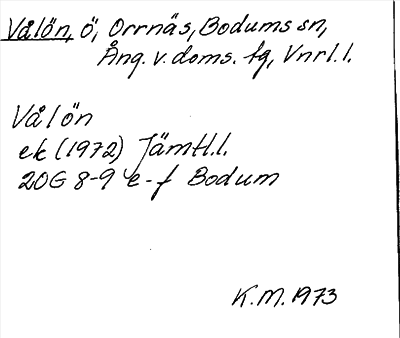 Vålön, ö, Orrnäs, Bodums sn,
Ång. v. doms. fg, Vnrl. l.
Vålön
ek (1972) Jämtl.l.
20G 8-9 e-f Bodum
K.M. 1973